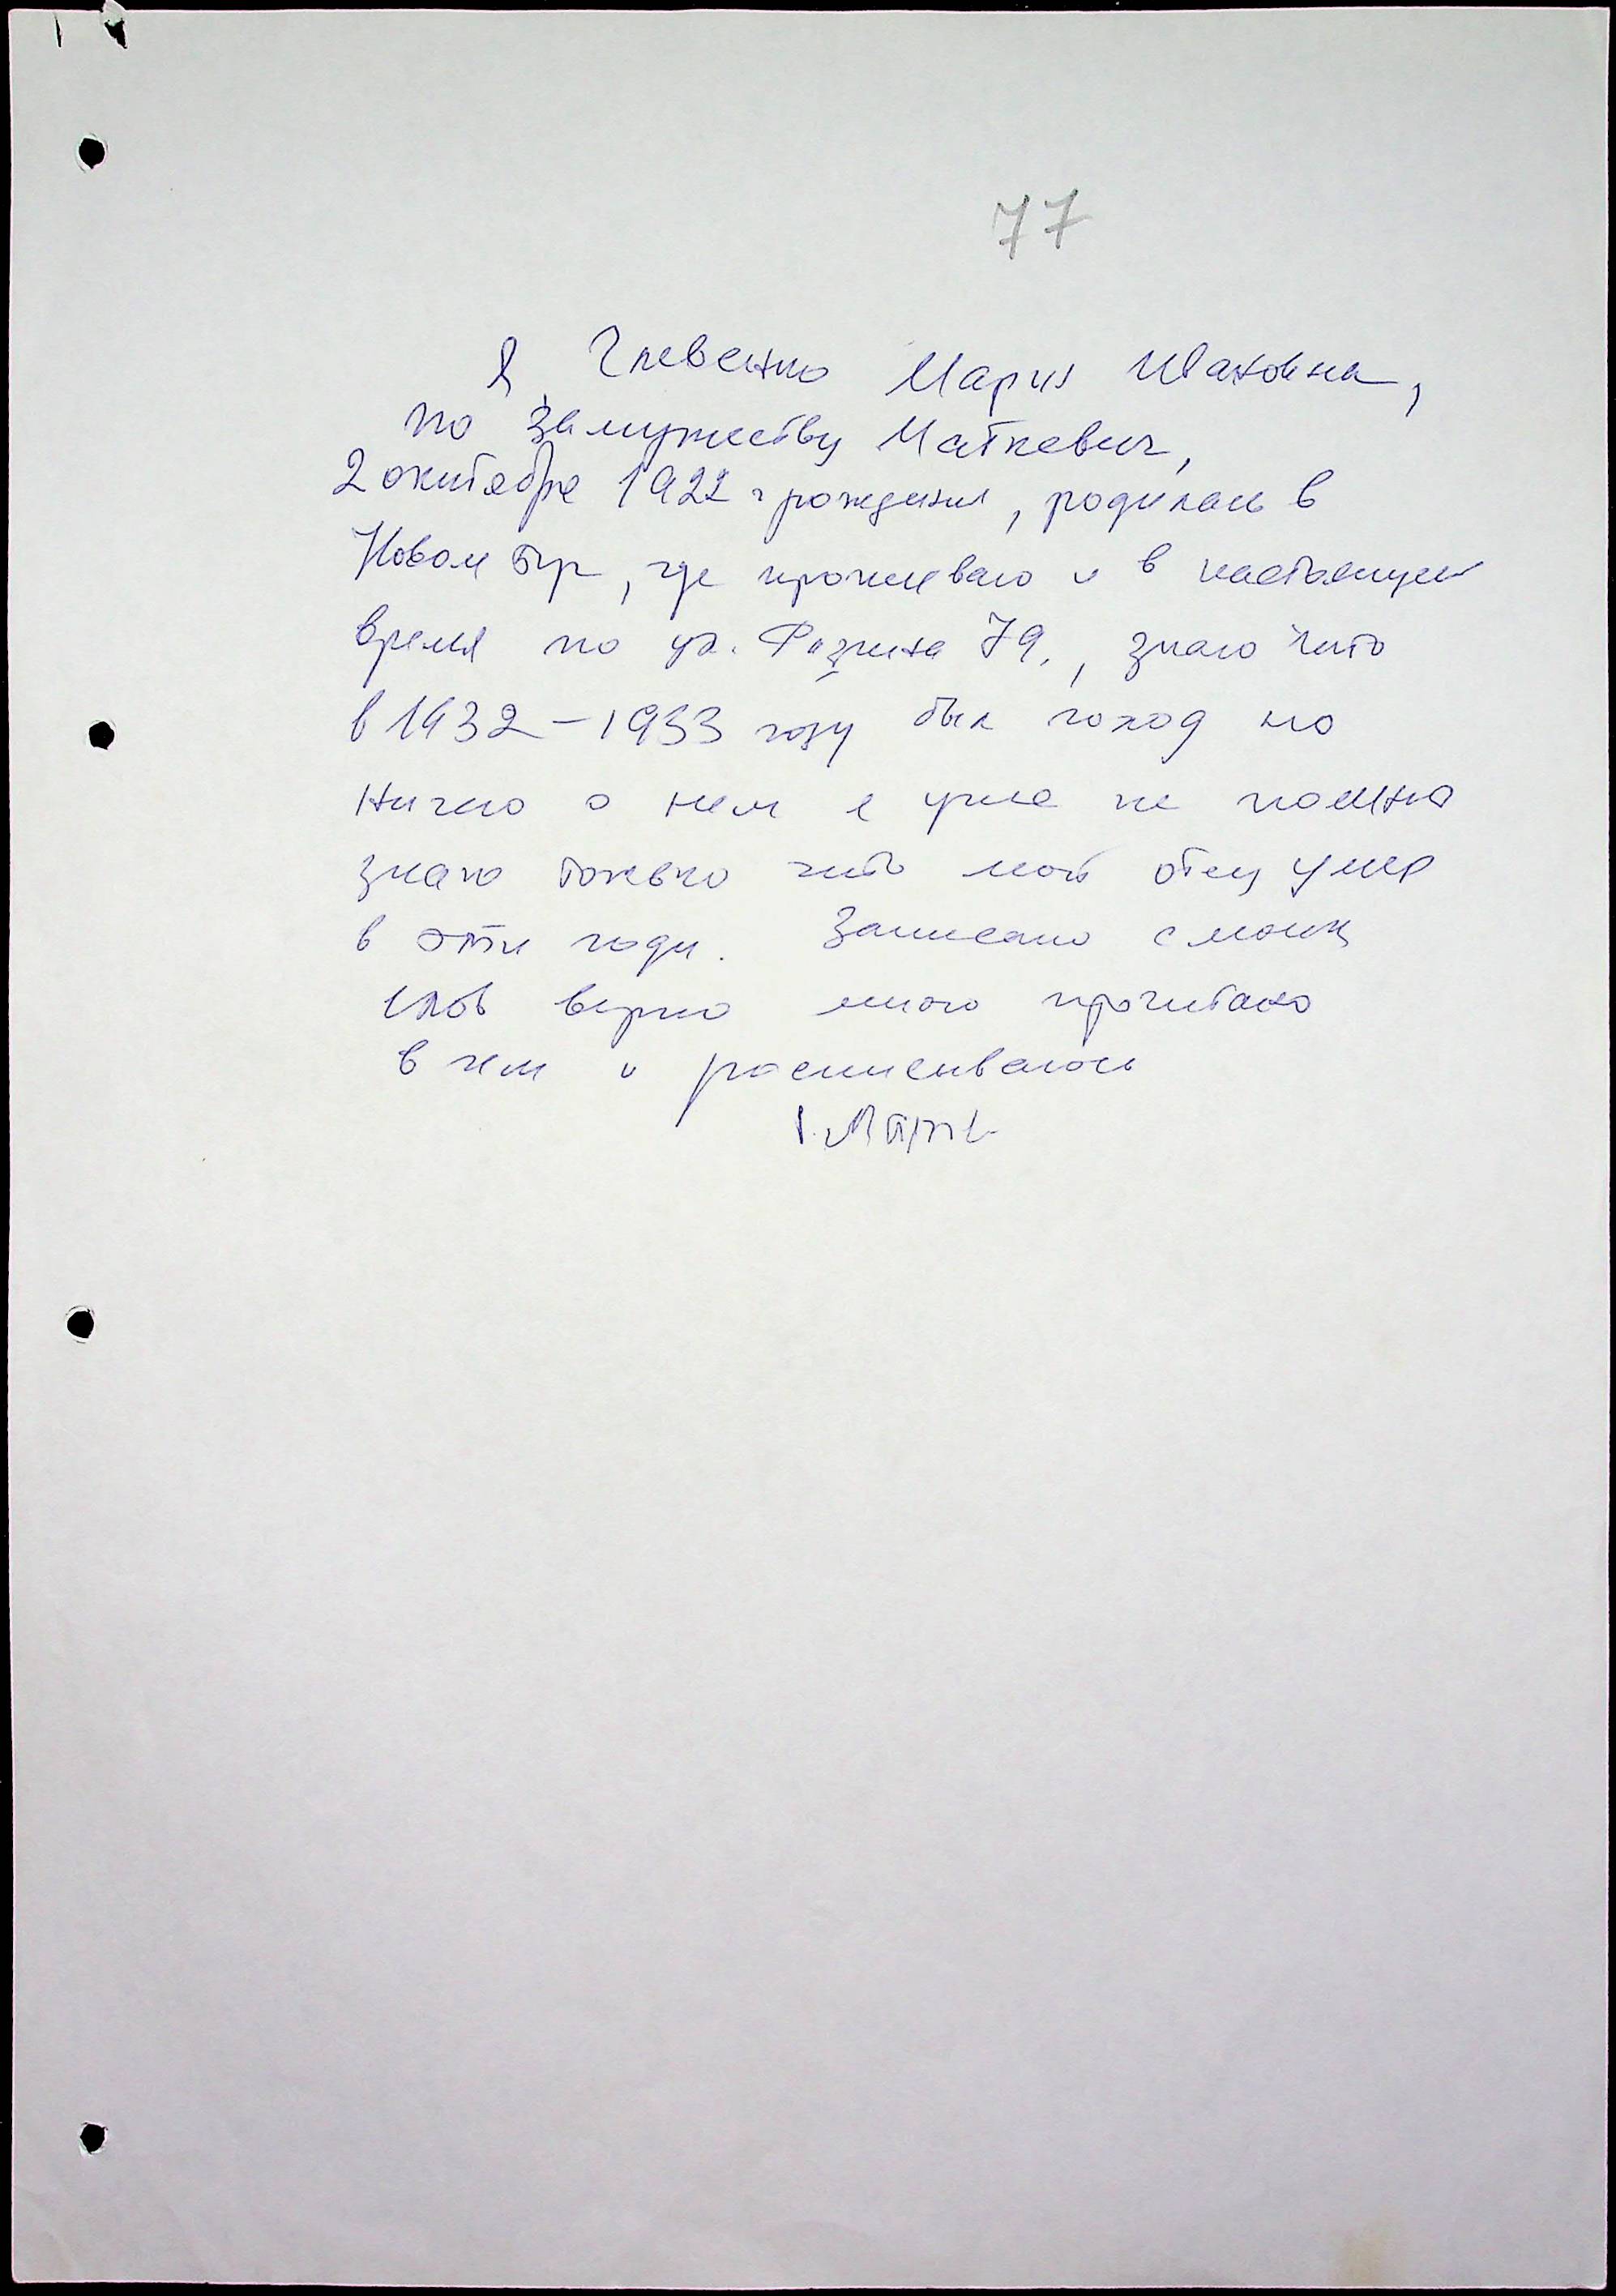 77
Я Глевенко Мария Ивановна,
по замужеству Маткевич,
2 октября 1922 г рождения, родилась в
Новом Буг, где проживаю и в настоящем
время по ул. 79., знаю что
в 1932 – 1933 году был голод но
ничего о нем я уже не помню
знаю только что мой отец умер
в эти годы. Записано с моих
слов верно мною прочитано
в чем и расписываюсь